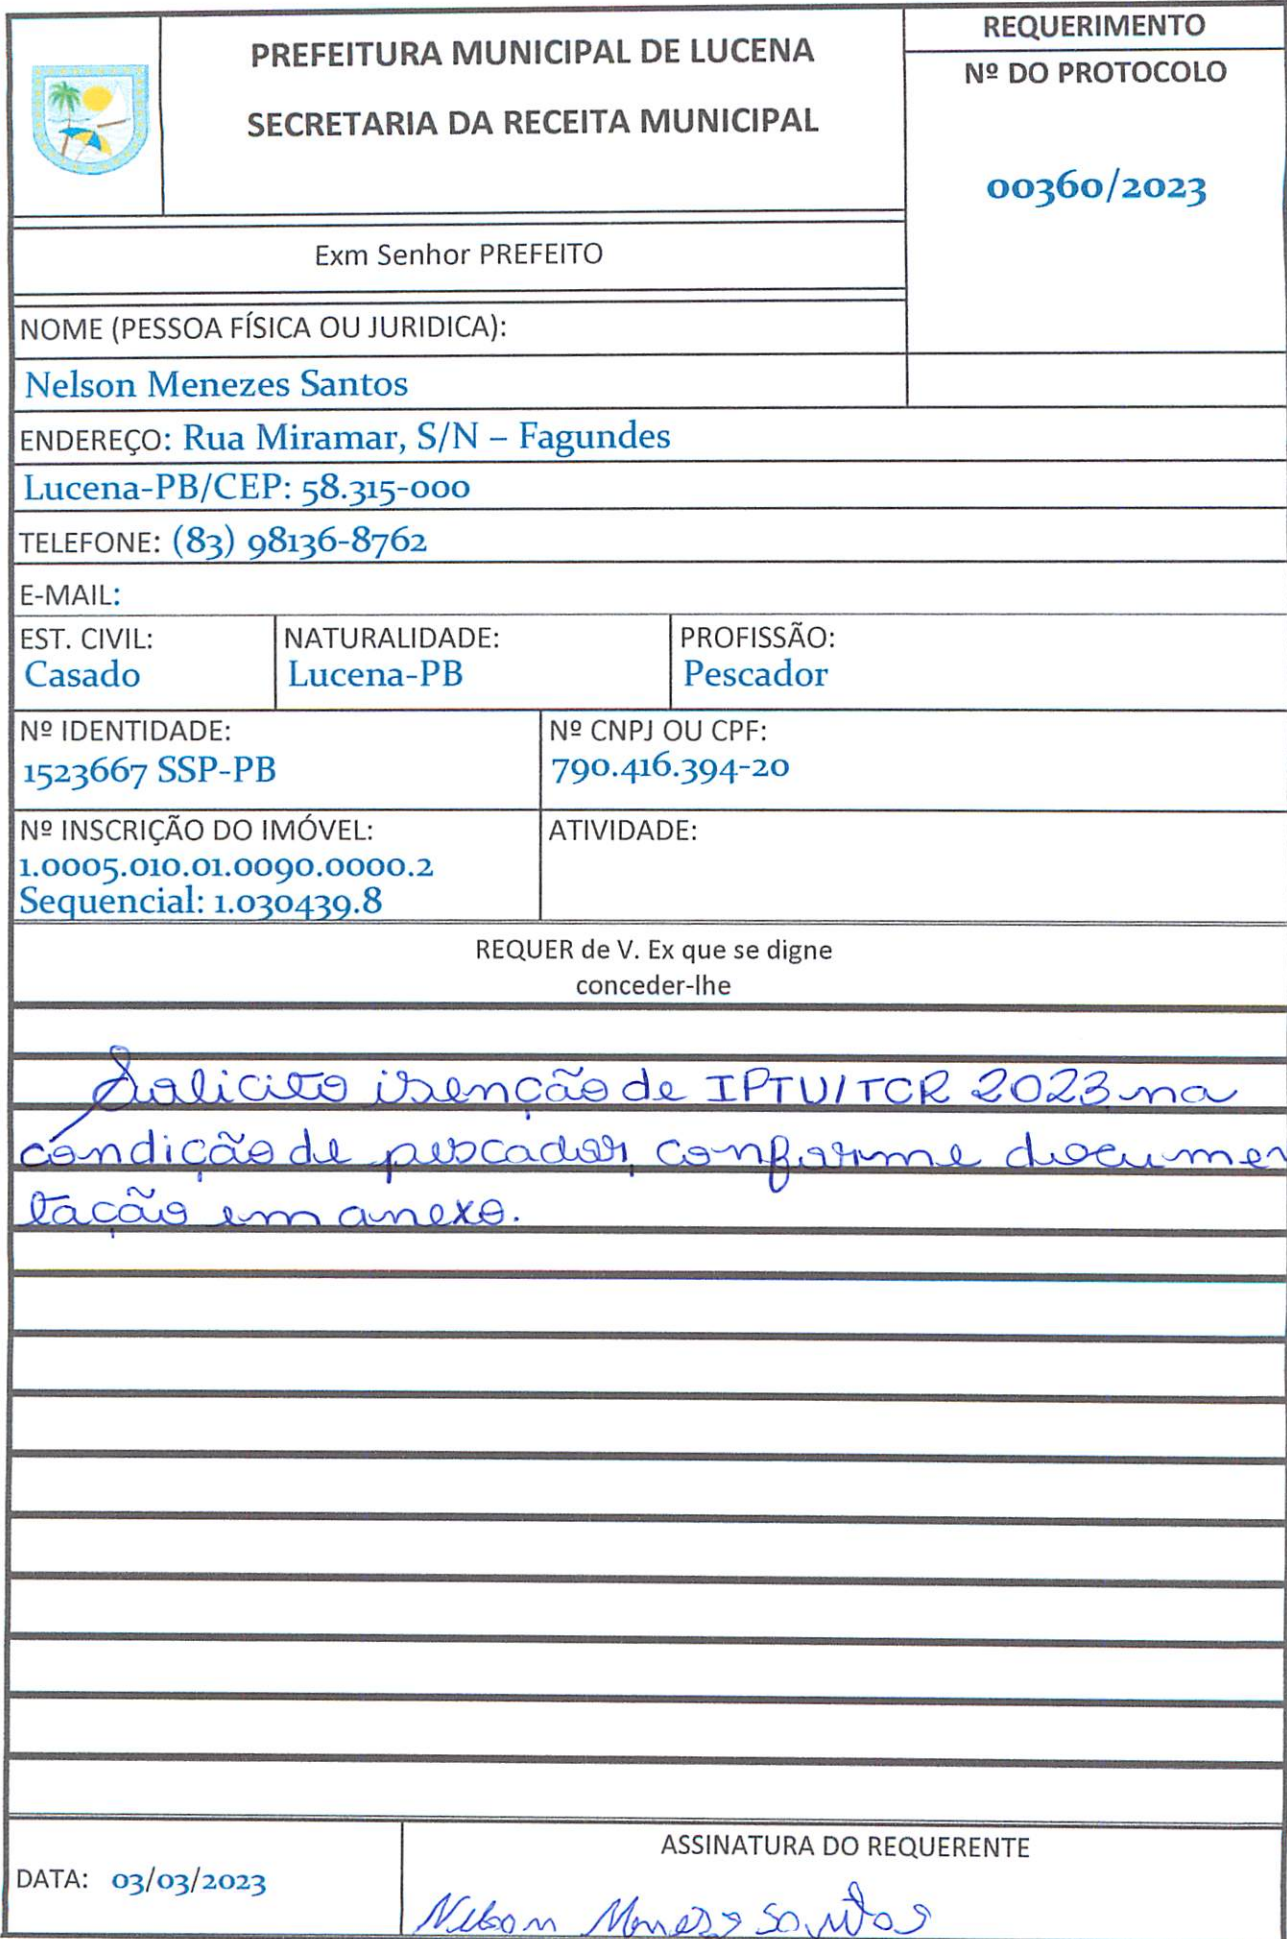 PREFEITURA MUNICIPAL DE LUCENA
SECRETARIA DA RECEITA MUNICIPAL
REQUERIMENTO
Nº DO PROTOCOLO
00360/2023
Exm Senhor PREFEITO
NOME (PESSOA FÍSICA OU JURIDICA):
Nelson Menezes Santos
ENDEREÇO: Rua Miramar, S/N – Fagundes
Lucena-PB/CEP: 58.315-000
TELEFONE: (83) 98136-8762
E-MAIL:
EST. CIVIL:
Casado
NATURALIDADE:
Lucena-PB
PROFISSÃO:
Pescador
Nº IDENTIDADE:
1523667 SSP-PB
Nº CNPJ OU CPF:
790.416.394-20
Nº INSCRIÇÃO DO IMÓVEL:
1.0005.010.01.0090.0000.2
Sequencial: 1.030439.8
ATIVIDADE:
REQUER de V. Ex que se digne
conceder-lhe
Solicito isenção de IPTU/TCR 2023 na
condição de pescador, conforme documen
tação em anexo.
DATA: 03/03/2023
ASSINATURA DO REQUERENTE
Nelson Menezes Santos